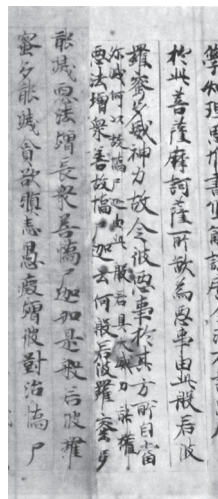 於此菩薩摩訶薩所欲為惡事由此般若波
羅蜜多威神力故令彼惡事於其方所自當
殄滅何以故憍尸迦此般若具大威力能摧
惡法增眾善故憍尸迦云何般若波羅蜜多
能滅惡法增長眾善憍尸迦如是般若波羅
蜜多能滅貪欲瞋恚愚癡增彼對治憍尸